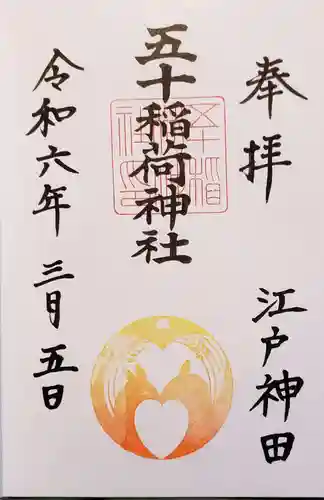 奉拝
江戸神田
五十稲荷神社
令和六年 三月 五日